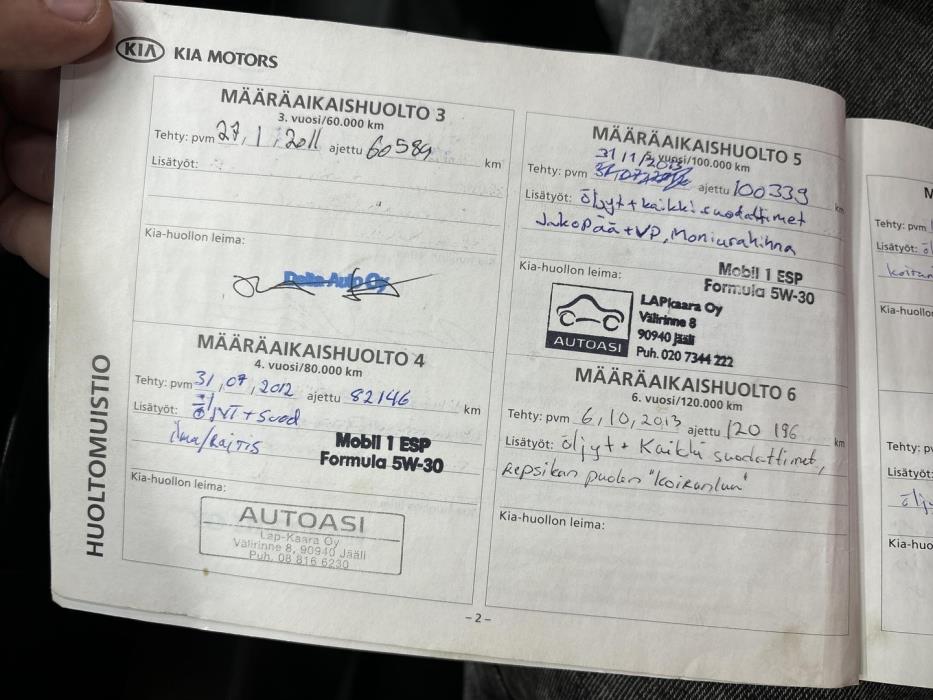 KIA KIA MOTORS
MÄÄRÄAIKAISHUOLTO 3
3. vuosi/60.000 km
Tehty: pvm 27,1,2011 ajettu 60589 km
Lisätyöt:
Kia-huollon leima:
Delta Auto Oy
MÄÄRÄAIKAISHUOLTO 4
4. vuosi/80.000 km
Tehty: pvm 31,07,2012 ajettu 82146 km
Lisätyöt: öljyt + suod
ilma/
Mobil 1 ESP
Formula 5W-30
Kia-huollon leima:
AUTOASI
Lap-Kaara Oy
Välirinne 8, 90940 Jääli
Puh. 08 816 6230
MÄÄRÄAIKAISHUOLTO 5
5. vuosi/100.000 km
31/1/2013
Tehty: pvm ajettu 100339 km
Lisätyöt: öljyt + kaikki suodattimet
Jakopää + VP, Moniurahihna
Kia-huollon leima:
Mobil 1 ESP
Formula 5W-30
AUTOASI
LAPkaara Oy
Välirinne 8
90940 Jääli
Puh. 020 7344 222
MÄÄRÄAIKAISHUOLTO 6
6. vuosi/120.000 km
Tehty: pvm 6,10,2013 ajettu 120 196 km
Lisätyöt: öljyt + Kaikki suodattimet,
repsikan puolen "koiranluu"
Kia-huollon leima:
HUOLTOMUISTIO
- 2 -
M
Tehty: pvm
Lisätyöt: öl
Kia-huollo
Tehty: pv
Lisätyöt:
ölj
Kia-huo